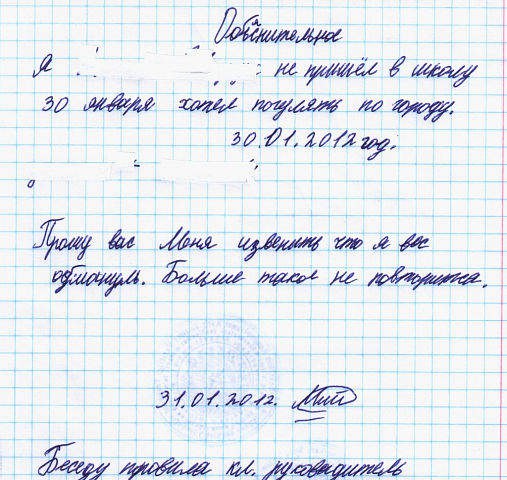 Объяснительное
Я не пришёл в школу
30 января хотел погулять по городу.
30.01.2012 год.
Прошу вас Меня извенить что я вас
обмонуль. Больше такое не повторится.
31.01.2012.
Беседу провила кл. руководитель